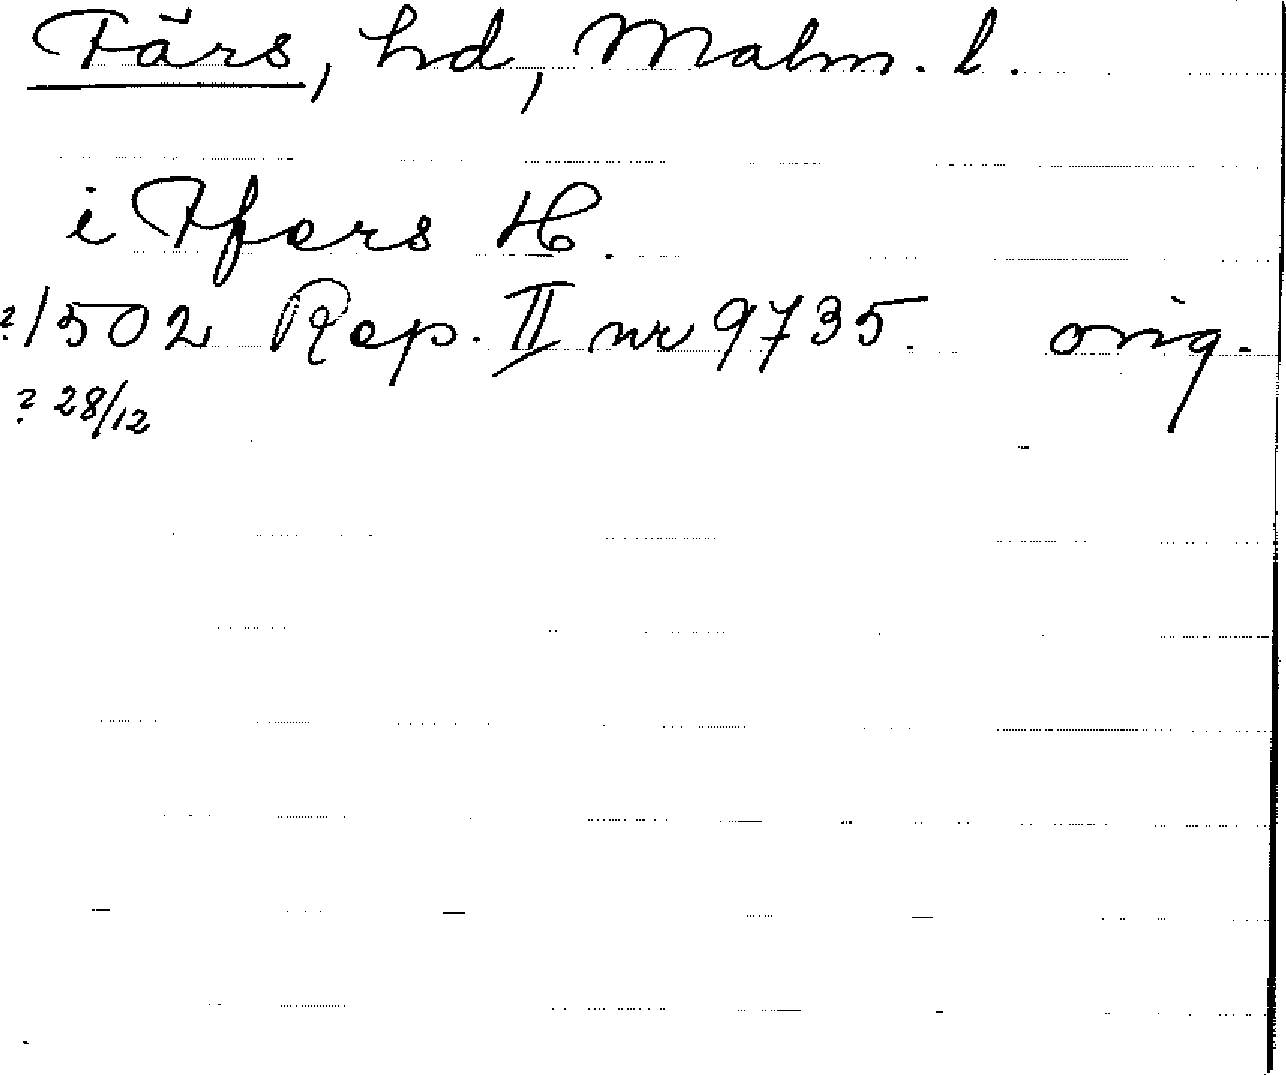 Färs, hd, Malm. l.
i Ffers H.
?1502 Rep. II nr 9735. orig.
? 28/12